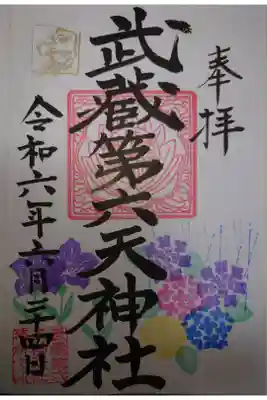 奉拝
武蔵第六天神社
令和六年六月二十四日